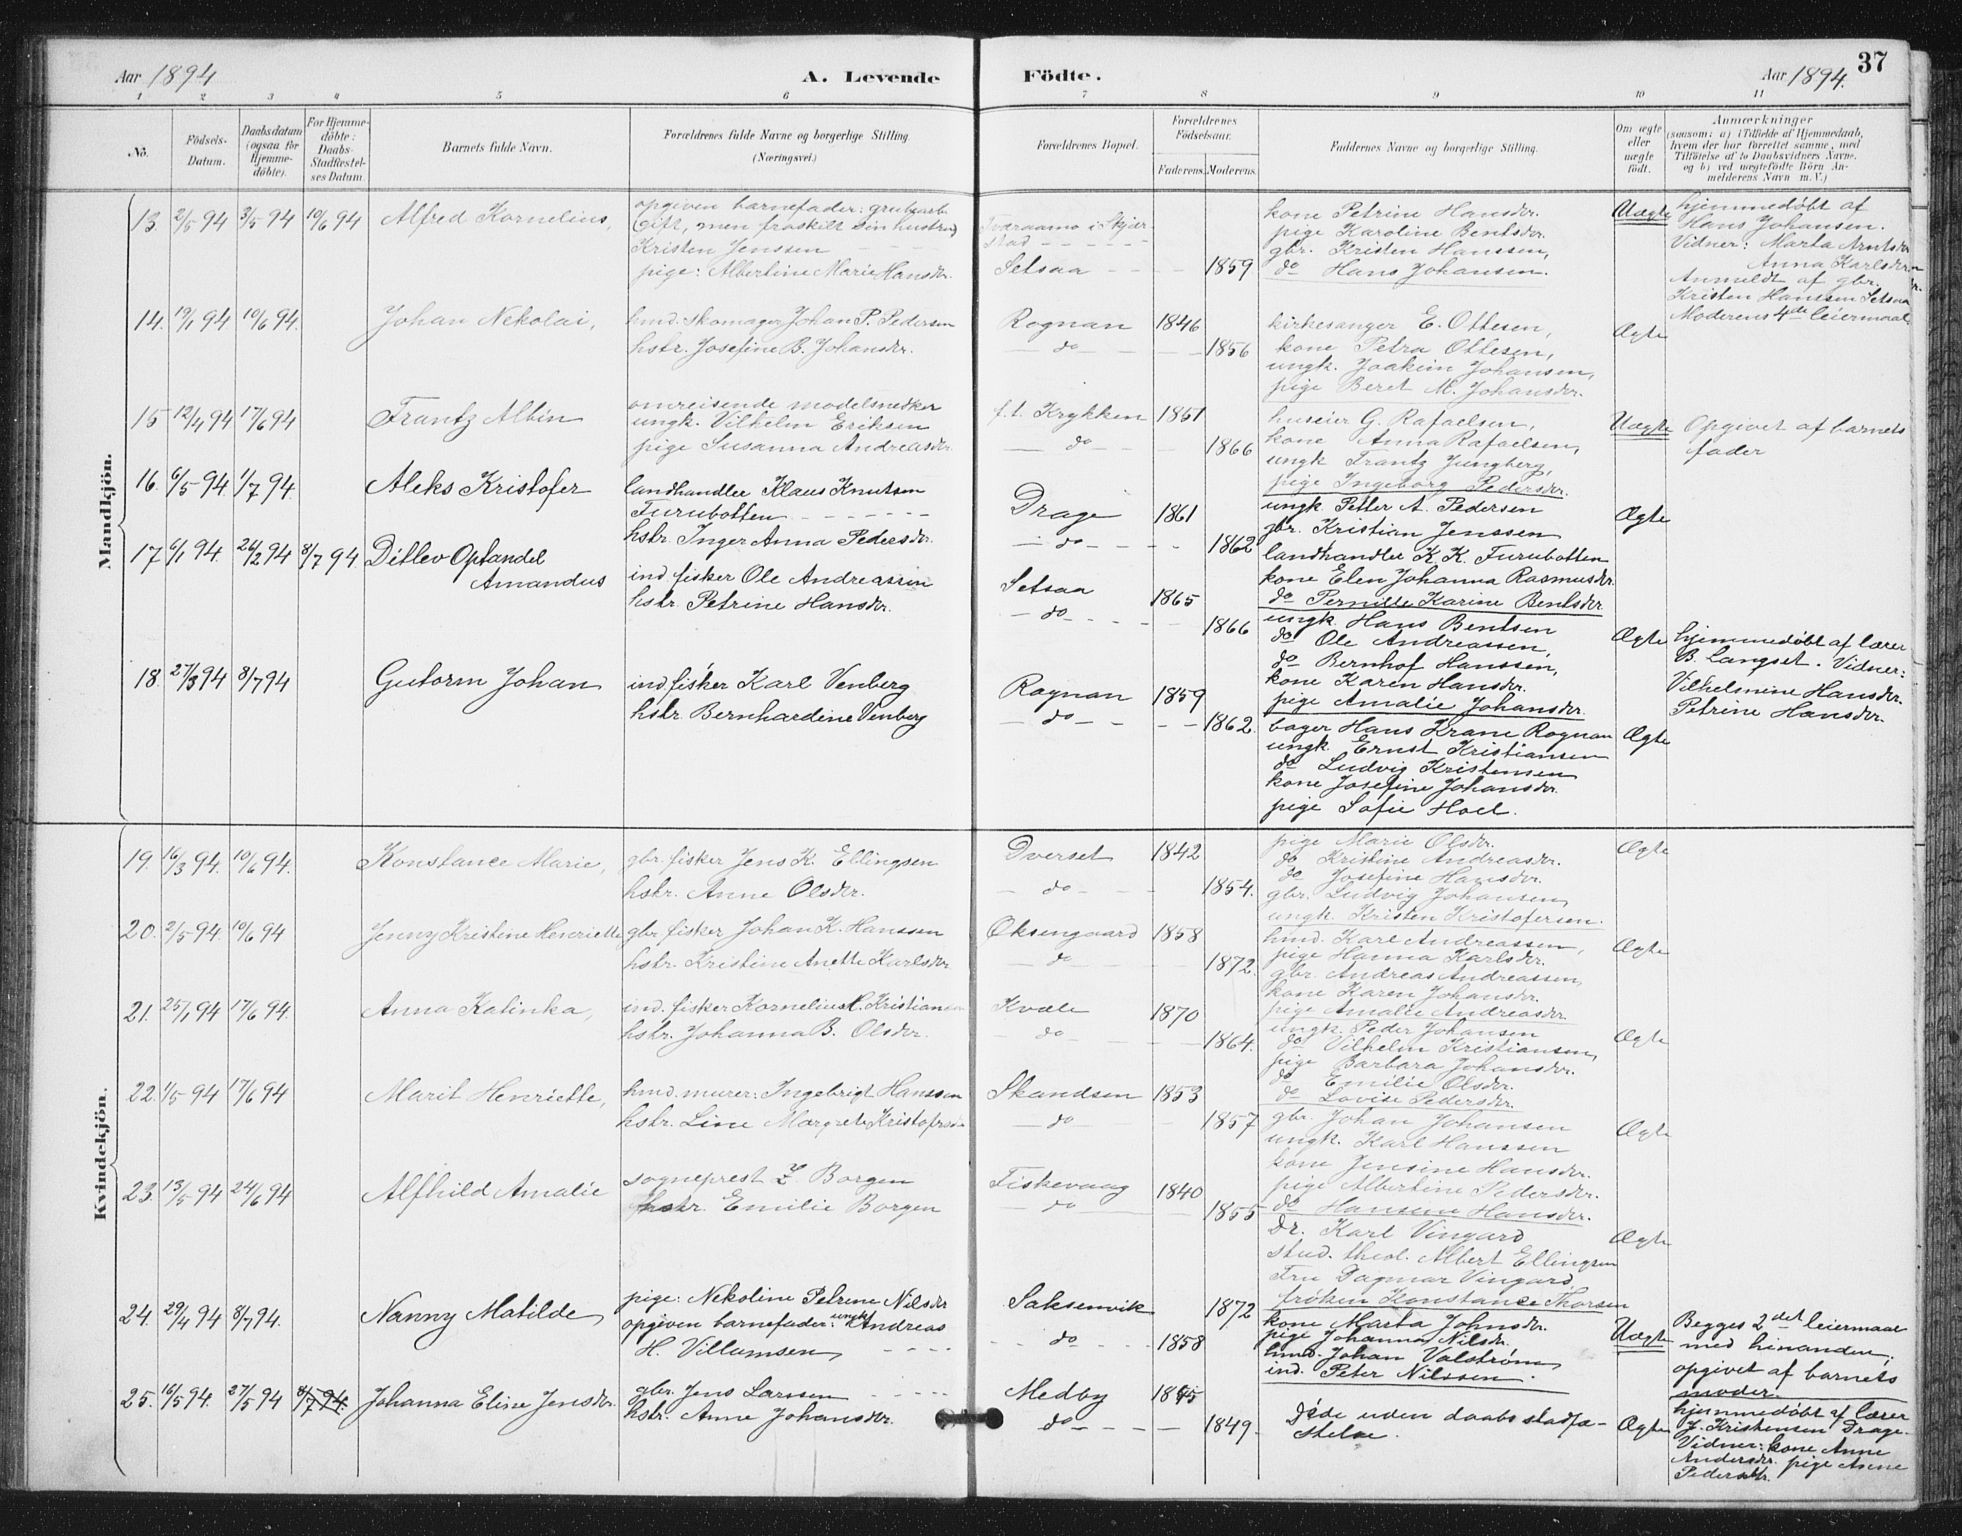 37
Aar 1894
A. Levende
Födte.
Aar 1894.
1 2 3 4 5 6 7 8 9 10 11
No.
Födsels-
Datum.
Daabsdatum
(ogsaa for
Hjemme-
döbte).
For Hjemme-
döbte:
Daabs-
Stadfæstel-
ses Datum.
Barnets fulde Navn.
Forældrenes fulde Navne og borgerlige Stilling
(Næringsvei.)
Forældrenes Bopæl.
Forældrenes
Födselsaar.
Faderens. Moderens.
Faddernes Navne og borgerlige Stilling.
Om ægte
eller
uægte
födt.
Anmærkninger
(saasom: a) i Tilfælde af Hjemmedaab,
hvem der har forrettet samme, med
Tilföielse af to Daabsvidners Navne.
og b) ved uægtefödte Börn An-
melderens Navn m. V.)
Mandkjön.
13. 2/5 94 3/5 94 10/6 94 Alfred Kornelius,
opgiven barnefader: grubearb.
(gift, men fraskilt sin hustru)
Kristen Jenssen
pige: Albertine Marie Hansdr.
Tveraamo i Skjær-
stad
Setsaa 1859
kone Petrine Hansdr.
pige Karoline Bentsdr.
gbr. Kristen Hanssen,
do Hans Johansen.
Uægte
hjemmedøbt af
Hans Johansen.
Vidner: Marta Arntsdr
Anna Karlsdr.
Anmeldt af gbr.
Kristen Hanssen Setsaa
Moderens 4de leiermaal.
14. 19/1 94 10/6 94. Johan Nekolai,
hmd. Skomager Johan P. Pedersen
hstr. Josefine B. Johansdr.
Rognan 1846
do 1856
kirkesanger E. Ottesen,
kone Petra Ottesen,
ungk. Joakim Johansen,
pige Beret M. Johansdr.
Ægte
15 12/4 94 17/6 94 Frantz Albin
omreisende modelsnedker
ungk. Vilhelm Eriksen
pige Susanna Andreasdr.
f. t. Krykken 1851
do 1866
huseier G. Rafaelsen,
kone Anna Rafaelsen,
ungk Frantz Jungberg,
pige Ingeborg Pedersdr.
Uægte
Opgivet af barnets
fader
16. 6/5 94 1/7 94. Aleks Kristofer
landhandler Klaus Knutsen
Furubotten
hstr. Inger Anna Pedersdr.
Drage 1861
do 1862
ungk Petter A. Pedersen
gbr. Kristian Jenssen
landhandler K. K. Furubotten
kone Elen Johanna Rasmusdr.
do Pernille Karine Bentsdr.
Ægte
17 6/1 94. 26/2 94 8/7 94 Ditlev Optandel
Amandus
ind. fisker Ole Andreassen
hstr. Petrine Hansdr.
Setsaa 1865
do 1866
ungk. Hans Bentsen
do Ole Andreassen,
do Bernhof Hanssen,
kone Karen Hansdr.
pige Amalie Johansdr.
Ægte
hjemmedøbt af lærer
B. Langset. Vidner:
Vilhelmine Hansdr.
Petrine Hansdr.
18. 27/3 94 8/7 94 Gutorm Johan
ind fisker Karl Venberg
hstr. Bernhardine Venberg
Rognan 1859
do 1862.
bager Hans Krane Rognan
ungk. Ernst Kristiansen
do Ludvig Kristensen
kone Josefine Johansdr.
pige Sofie Hoel.
Ægte
Kvindekjön.
19. 16/3 94. 10/6 94. Konstance Marie,
gbr. fisker Jens K. Ellingsen
hstr. Anne Olsdr.
Dverset 1842
do 1854.
pige Marie Olsdr.
do Kristine Andreasdr.
do Josefine Hansdr.
gbr. Ludvig Johansen,
ungk. Kristen Kristofersen.
Ægte
20. 2/5 94. 10/6 94 Jenny Kristine Henriette
gbr. fisker Johan K. Hanssen
hstr. Kristine Anette Karlsdr
Oksengaard 1858
do 1872.
hmd. Karl Andreassen,
pige Hanna Karlsdr.
gbr. Andreas Andreassen,
kone Karen Johansdr.
pige Amalie Andreasdr.
Ægte
21. 25/1 94 17/6 94. Anna Katinka,
ind. fisker Kornelius M. Kristiansen
hstr. Johanna B. Olsdr.
Kvæle 1870
do 1864.
ungk. Peder Johansen
do Vilhelm Kristiansen,
pige Barbara Johansdr.
do Emilie Olsdr.
do Lovise Pedersdr.
Ægte
22. 1/5 94 17/6 94 Marit Henriette,
hmd. murer: Ingebrigt Hanssen
hstr. Line Margrete Kristofersdr
Skandsen 1853
do 1857
gbr. Johan Johansen
ungk. Karl Hanssen
kone Jensine Hansdr.
pige Albertine Pedersdr.
do Hansine Hansdr.
Ægte
23. 13/5 94 24/6 94 Alfhild Amalie
sogneprest Z Borgen
hstr. Emilie Borgen
Fiskevaag 1840
do 1855
Dr. Karl Vingard
stud. theol. Albert Ellingsen
Fru Dagmar Vingard,
frøken Konstance Thorsen
Ægte
24. 29/4 94 8/7 94. Nanny Matilde
pige: Nekoline Petrine Nilsdr
opgiven barnefader: ungk Andreas
H. Villumsen,
Saksenvik 1872
do 1858
kone Marta Johnsdr.
pige Johanna Nilsdr.
hmd. Johan Valstrøm,
ind. Peter Nilssen.
Uægte
Begges 2det leiermaal
med hinanden;
opgivet af barnets
moder.
25. 16/5 94. 27/5 94 8/7 94. Johanna Eline Jensdr.
gbr. Jens Larssen
hstr. Anne Johansdr.
Medby 1845
do 1849.
Døde uden daabs stadfæ-
stelse.
Ægte
hjemmedøbt af lærer
J. Kristensen Drage.
Vidner: kone Anne
Andersdr. pige Anne
Pedersdtr.